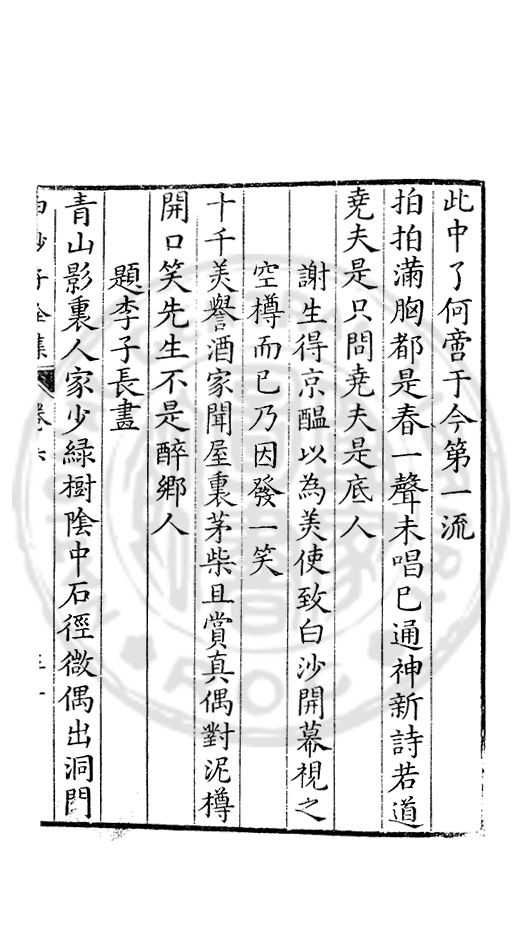 此中了何啻于今第一流
拍拍滿胸都是春一聲未唱已通神新詩若道
堯夫是只問堯夫是底人
謝生得京醖以為美使致白沙開幕視之
空樽而已乃因發一笑
十千美譽酒家聞屋裏茅柴且賞真偶對泥樽
開口笑先生不是醉鄉人
題李子長畫
青山影裏人家少綠樹陰中石徑微偶出洞門
白沙子全集
卷六